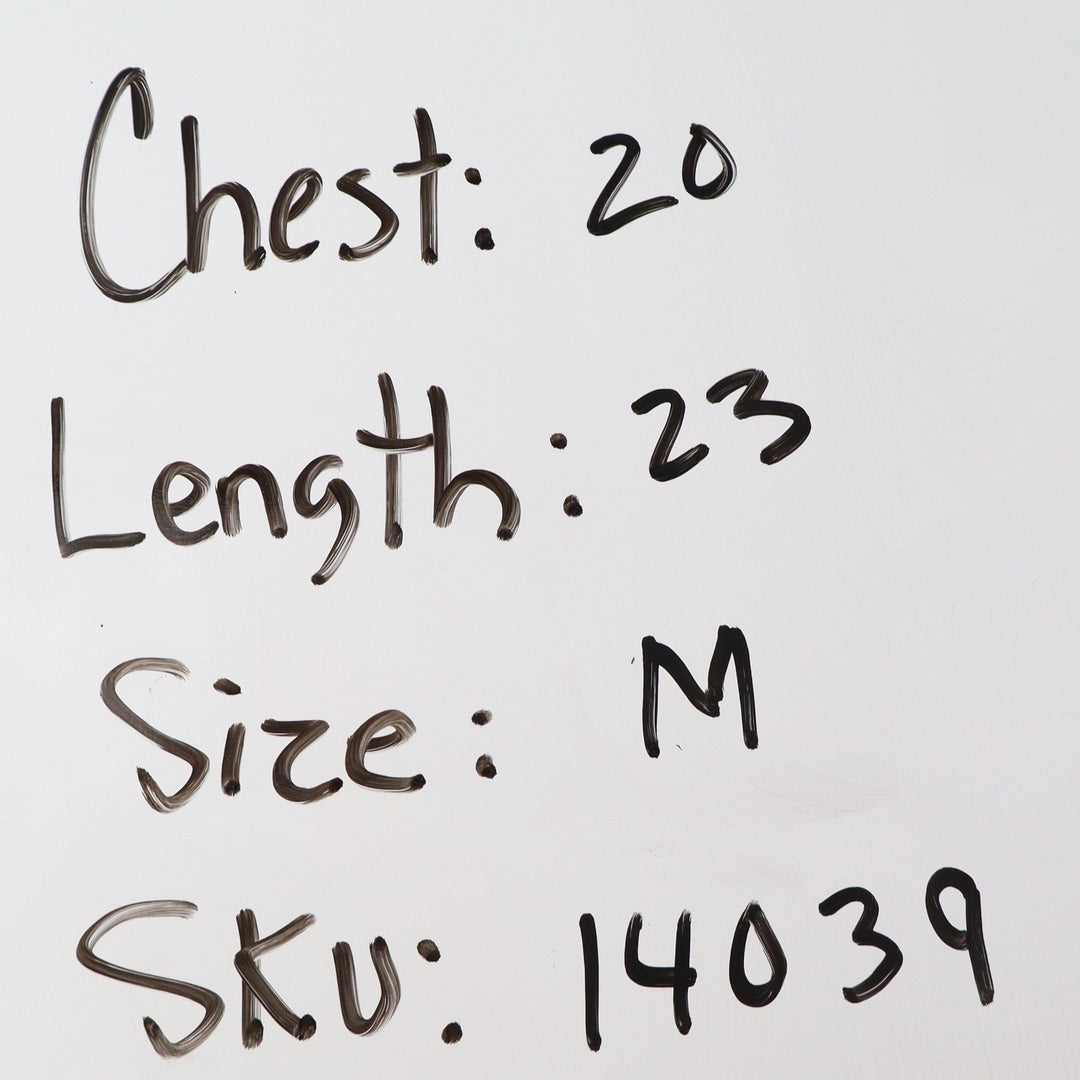 Chest: 20
Length: 23
Size: M
SKU: 14039